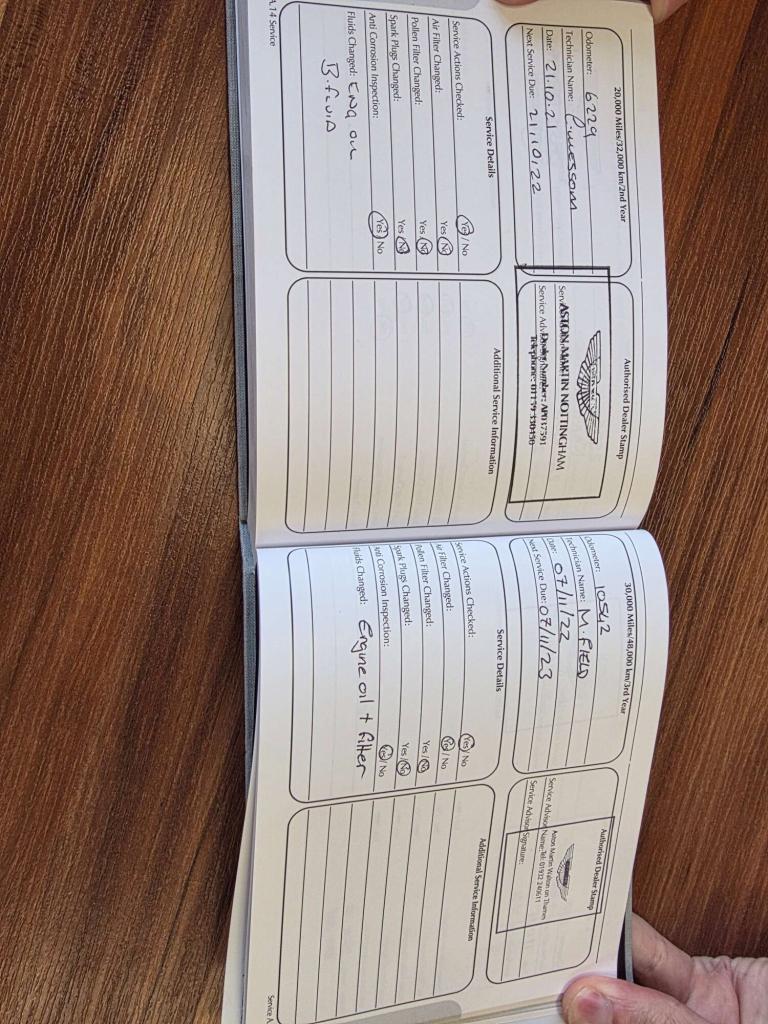 20,000 Miles/32,000 km/2nd Year
Odometer: 6229
Technician Name:
Date: 21.10.21
Next Service Due: 21/10/22
Authorised Dealer Stamp
ASTON MARTIN NOTTINGHAM
Service Details
Service Actions Checked: Yes / No
Air Filter Changed: Yes / No
Pollen Filter Changed: Yes / No
Spark Plugs Changed: Yes / No
Anti Corrosion Inspection: Yes / No
Fluids Changed: ENG OIL
B.FLUID
Additional Service Information
A.14 Service
30,000 Miles/48,000 km/3rd Year
Odometer: 10542
Technician Name: M. FIELD
Date: 07/11/22
Next Service Due: 07/11/23
Authorised Dealer Stamp
Aston Martin Walton on Thames
Service Advisor Name: Tel: 01932 240611
Service Advisor Signature:
Service Details
Service Actions Checked: Yes / No
Air Filter Changed: Yes / No
Pollen Filter Changed: Yes / No
Spark Plugs Changed: Yes / No
Anti Corrosion Inspection: Yes / No
Fluids Changed: Engine oil + filter
Additional Service Information
Service A